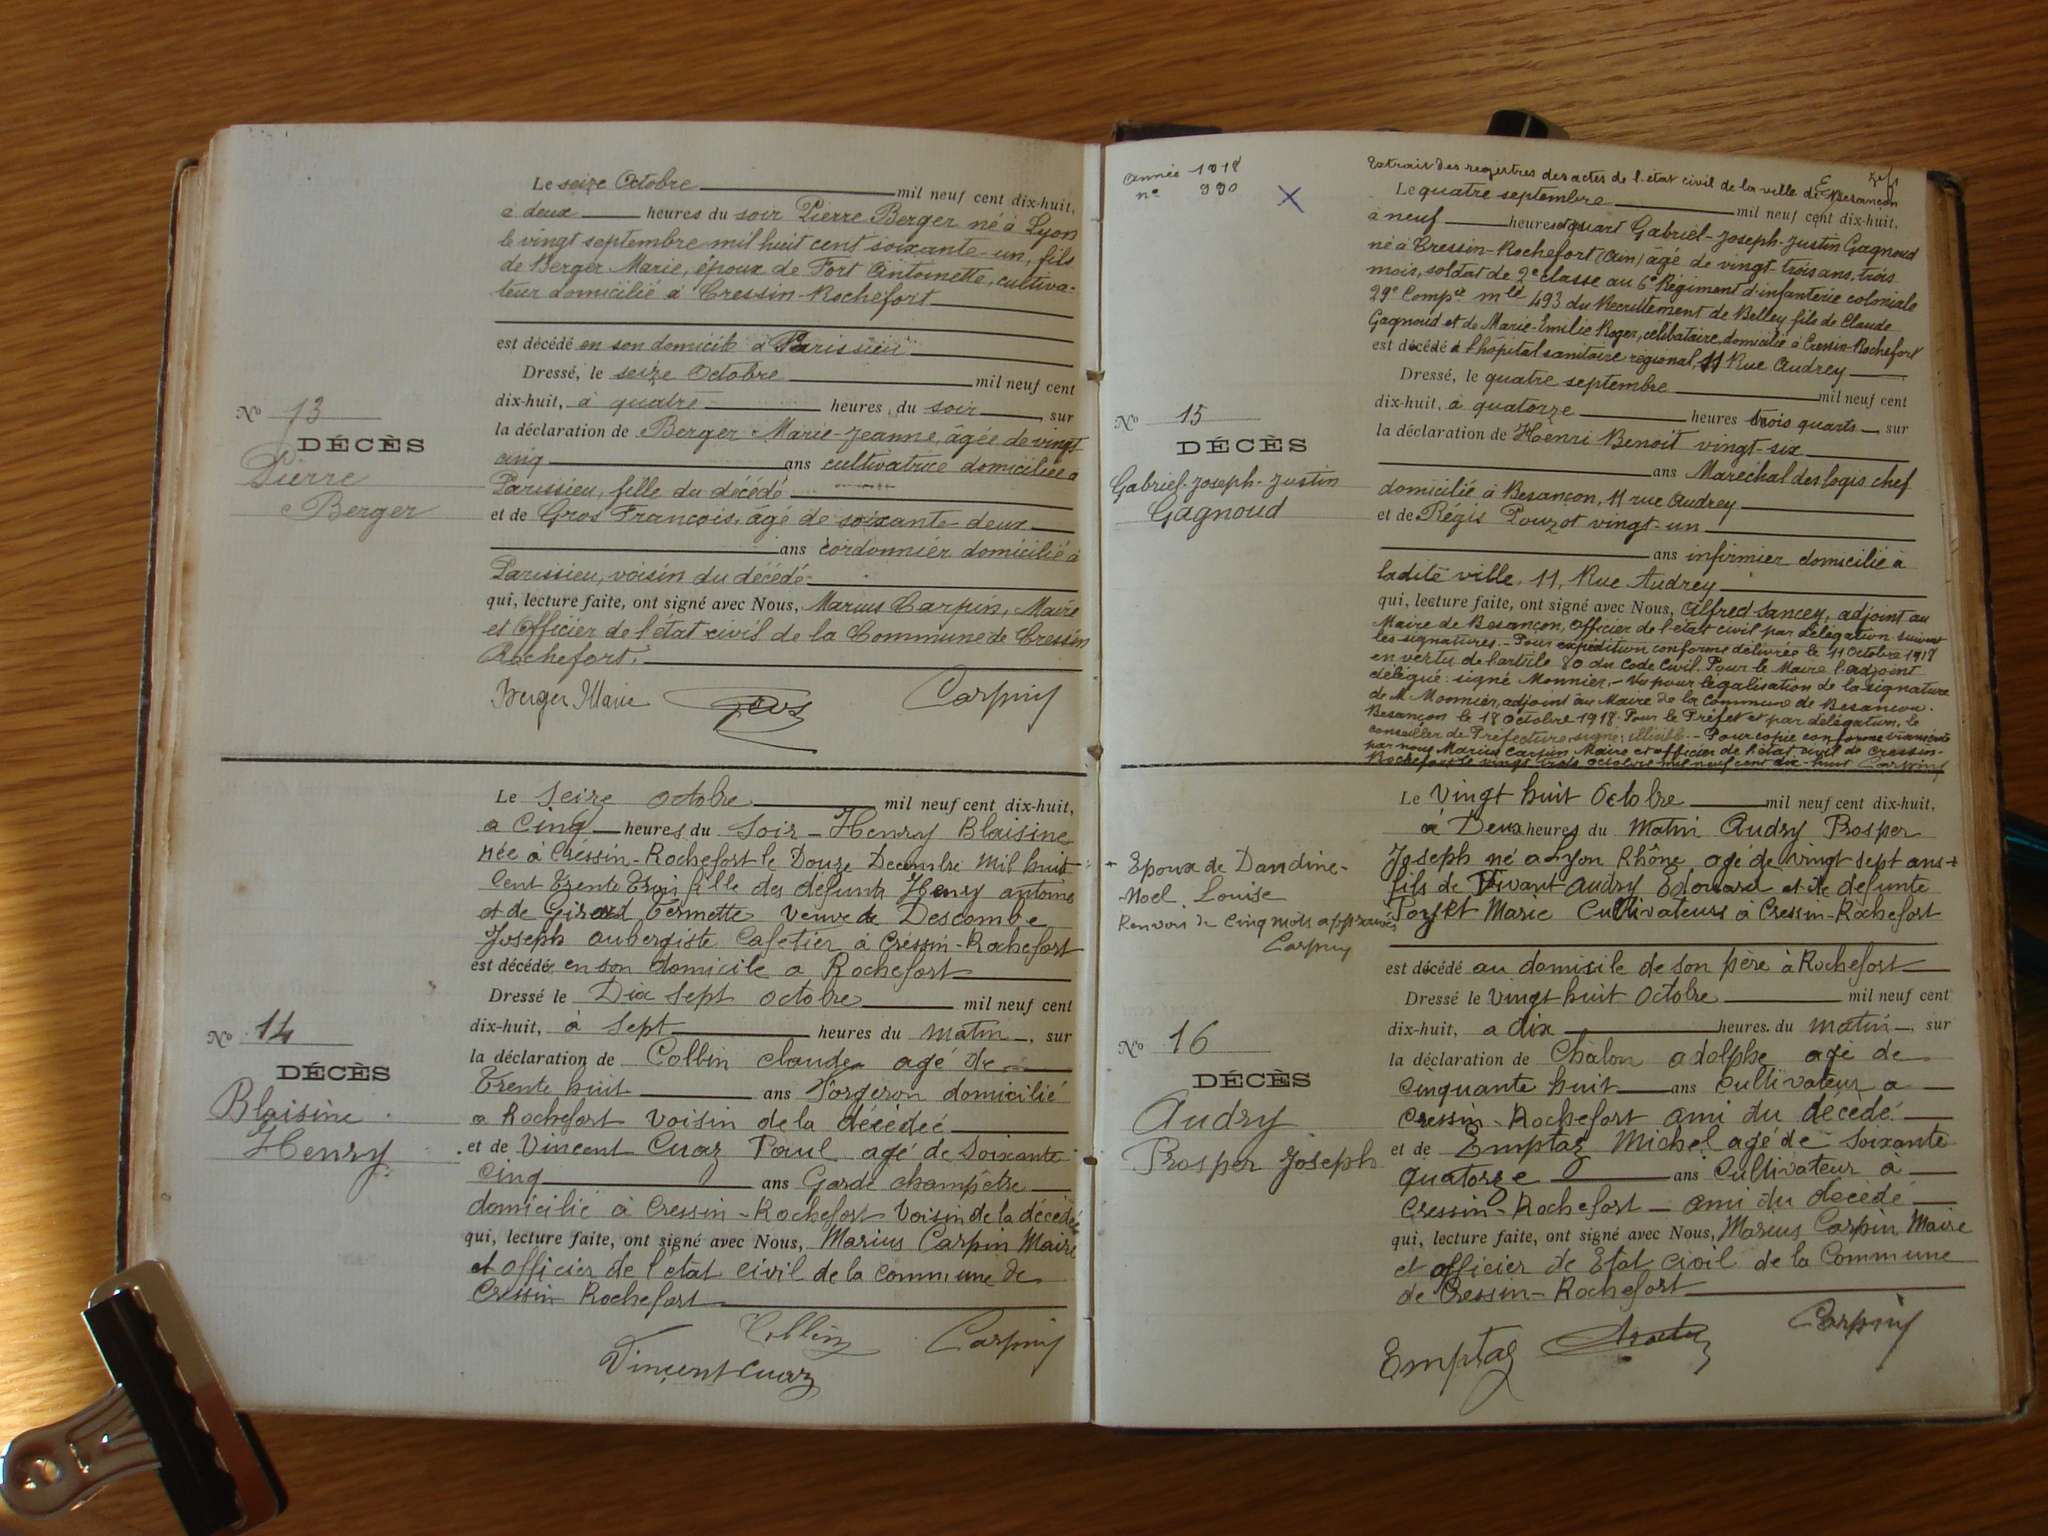 Le seize Octobre mil neuf cent dix-huit,
à deux heures du soir Pierre Berger né à Lyon
le vingt septembre mil huit cent soixante-un, fils
de Berger Marie, époux de Fort Antoinette, cultiva-
teur domicilié à Cressin-Rochefort
est décédé en son domicile à Parissieu
Dressé, le seize Octobre mil neuf cent
dix-huit, à quatre heures du soir, sur
la déclaration de Berger Marie-Jeanne, âgée de vingt
cinq ans cultivatrice domiciliée à
Parissieu, fille du décédé
et de Gros François, âgé de soixante-deux
ans cordonnier domicilié à
Parissieu, voisin du décédé
qui, lecture faite, ont signé avec Nous, Marius Carpin, Maire
et Officier de l'état civil de la Commune de Cressin
Rochefort.
Berger Marie Gros Carpin
No 13
DÉCÈS
Pierre
Berger
Le Seize octobre mil neuf cent dix-huit,
a Cinq heures du Soir - Henry Blaisine
née à Cressin-Rochefort le Douze Decembre Mil huit
Cent Trente Trois fille des defunts Henry antoine
et de Girard Termette Veuve de Descombe
Joseph aubergiste Cafetier à Cressin-Rochefort
est décédé en son domicile a Rochefort
Dressé le Dix Sept octobre mil neuf cent
dix-huit, à Sept heures du matin, sur
la déclaration de Collin claude agé de
Trente huit ans Forgeron domicilié
a Rochefort Voisin de la décédeé
et de Vincent Cuaz Paul agé de Soixante
Cinq ans Garde champêtre
domicilié à Cressin-Rochefort Voisin de la décédée
qui, lecture faite, ont signé avec Nous, Marius Carpin Maire
et officier de l'etat civil de la commune de
Cressin Rochefort
Collin Carpin
Vincent Cuaz
No 14
DÉCÈS
Blaisine
Henry
Année 1918
n° 990
X
Extrait des registres des actes de l'etat civil de la ville de Besançon
Le quatre septembre mil neuf cent dix-huit,
à neuf heures et quart Gabriel-Joseph-Justin Gagnoud
né à Cressin-Rochefort (Ain) âgé de vingt-trois ans, trois
mois, soldat de 2e classe au 6e Régiment d'infanterie coloniale
29e Compie mle 493 du Recrutement de Belley, fils de Claude
Gagnoud et de Marie-Emilie Roger, célibataire, domicilié à Cressin-Rochefort
est décédé à l'hôpital sanitaire régional, 11 Rue Audrey
Dressé, le quatre septembre mil neuf cent
dix-huit, à quatorze heures trois quarts, sur
la déclaration de Henri Benoit vingt-six
ans Maréchal des logis chef
domicilié à Besançon, 11 rue Audrey
et de Régis Pouzot vingt-un
ans infirmier domicilié à
ladite ville, 11, Rue Audrey
qui, lecture faite, ont signé avec Nous, Alfred Sancey, adjoint au
Maire de Besançon, officier de l'état civil par délégation suivent
les signatures. - Pour expédition conforme délivrée le 11 Octobre 1918
en vertu de l'article 80 du Code Civil. Pour le Maire l'adjoint
délégué : signé Monnier. - Vu pour légalisation de la signature
de M. Monnier, adjoint au Maire de la commune de Besançon.
Besançon le 18 octobre 1918. Pour le Préfet et par délégation, le
conseiller de Préfecture, signé : illisible. - Pour copie conforme
par nous Marius Carpin Maire et officier de l'état civil de Cressin-
Rochefort le vingt trois octobre mil neuf cent dix-huit Carpin
No 15
DÉCÈS
Gabriel-Joseph-Justin
Gagnoud
Le Vingt huit Octobre mil neuf cent dix-huit,
à Deux heures du matin Audry Prosper
Joseph né a Lyon Rhône agé de vingt sept ans +
fils de Vivant Audry Edouard et de defunte
Marie Cultivateurs à Cressin-Rochefort
est décédé au domicile de son père à Rochefort
Dressé le Vingt huit Octobre mil neuf cent
dix-huit, a dix heures du matin, sur
la déclaration de Chalon adolphe agé de
Cinquante huit ans cultivateur a
Cressin-Rochefort ami du décédé
et de Emptaz Michel agé de Soixante
quatorze ans Cultivateur à
Cressin-Rochefort - ami du décédé
qui, lecture faite, ont signé avec Nous, Marius Carpin Maire
et officier de Etat Civil de la Commune
de Cressin-Rochefort
Emptaz Carpin
+ Epoux de Dandine-
Noel Louise
Renvoi de Cinq mots approuvés
Carpin
No 16
DÉCÈS
Audry
Prosper Joseph